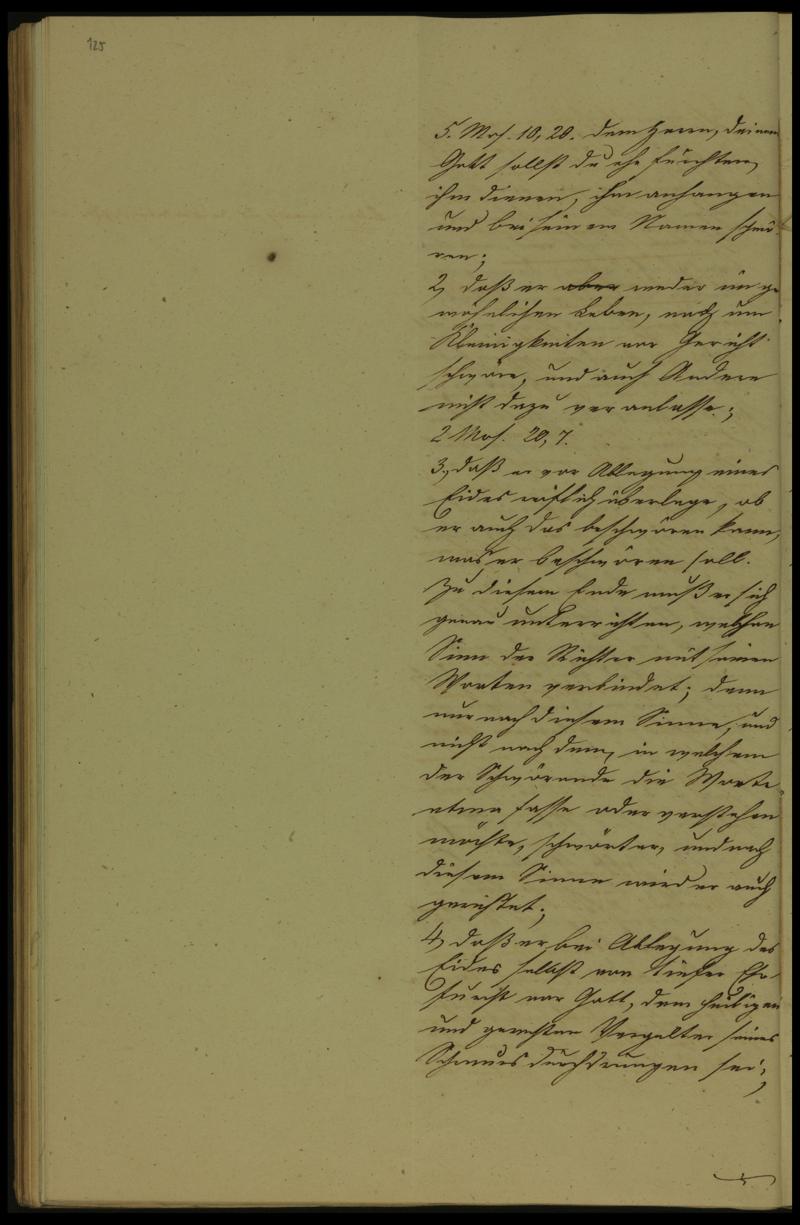 125
5. Mos. 10, 20. dem Herrn, deinem
Gott sollst du ehe fürchten,
ihm dienen, ihm anhangen
und bei seinem Namen schwö-
ren;
2, daß er aber weder im ge-
wöhnlichen Leben, noch um
Kleinigkeiten vor Gericht
schwöre, und auch Andere
nicht dazu veranlasse;
2 Mos. 20, 7.
3, daß er vor Ablegung eines
Eides reiflich überlege, ob
er auch das beschwören kann,
was er beschwören soll.
Zu diesem Ende muß er sich
genau unterrichten, welchen
Sinn der Richter mit seinen
Worten verbindet; denn
nur nach diesem Sinne, und
nicht nach dem, in welchem
der Schwörende die Worte
etwa fasse oder verstehen
möchte, schwört er, und nach
diesem Sinne wird er auch
gerichtet;
4, daß er bei Ablegung des
Eides selbst von tiefer Ehr-
furcht vor Gott, dem heiligen
und gerechten Vergelter seines
Schwurs durchdrungen sei;